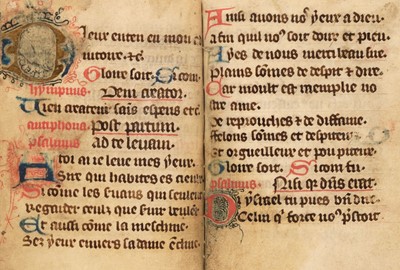 Dieur enten en mon ai
iutoire. &c.
Gloire soit. Sicom.
hympnus. Veni creator.
Uien createur sains espens etc
antiphona. Post partum.
psalmus ad te levavi.
A toi ai ie leue mes yeur.
Sire qui habites es cieur
Si come les serans qui seulent
Regarder ceulz que sunt
Et aussi come la meschine
Ses yeur enuers sa dame
Ainsi auons noz yeur a dieu
Afin quil noz soit doure et pieu
Ayes de nous merci beau sire
Plains somes de despit & dire
Car moult est raemplie no
stre ame.
De reprouches & de diffame
felons somes et despiteur
Et orgueilleur et pou piteur
Gloire soit. Sicom fu
psalmus. Nisi quia dominus erat
Diysrael tu pues
Celui que force